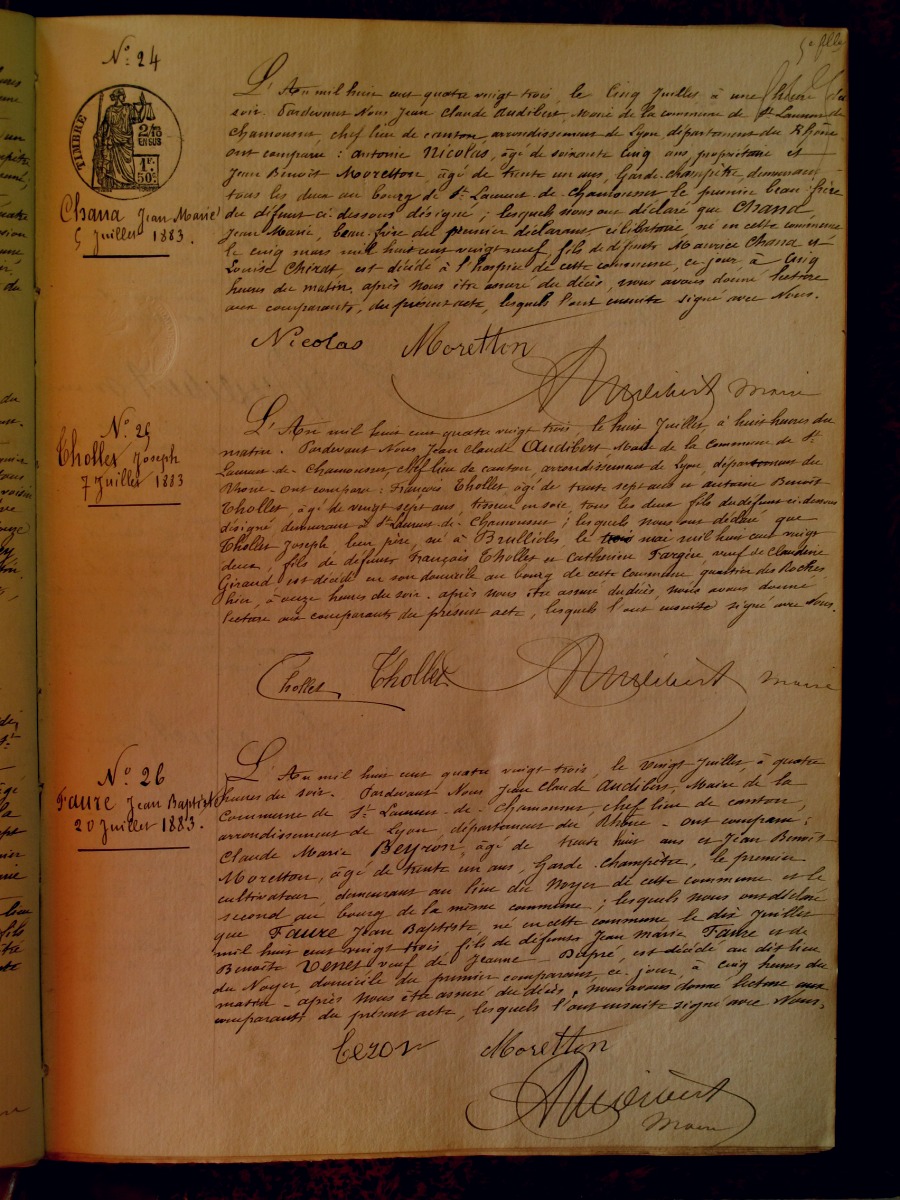 5e fllet
N° 24
TIMBRE
2/10 EN SUS
1F. 50c.
Chana Jean Marie
5 Juillet 1883.
L'An mil huit cent quatre vingt trois, le cinq Juillet à une heure du
soir. Pardevant Nous Jean Claude Audibert, Maire de la commune de St Laurent de
Chamousset, chef lieu de canton arrondissement de Lyon département du Rhône
ont comparu : Antoine Nicolas, âgé de soixante cinq ans, propriétaire et
Jean Benoit Moretton, âgé de trente un ans, Garde-champêtre demeurant
tous les deux au bourg de St Laurent de Chamousset le premier beau-frère
du défunt ci-dessous désigné ; lesquels nous ont déclaré que Chana
Jean Marie, beau-frère du premier déclarant, célibataire, né en cette commune
le cinq mars mil huit cent vingt neuf, fils de défunts Maurice Chana et
Louise Chirat, est décédé à l'hospice de cette commune, ce jour à cinq
heures du matin. après nous être assuré du décès, nous avons donné lecture
aux comparants, du présent acte, lesquels l'ont ensuite signé avec Nous.
Nicolas Moretton
Audibert maire
N° 25
Thollet Joseph
7 Juillet 1883
L'An mil huit cent quatre vingt trois le huit Juillet, à huit heures du
matin. Pardevant Nous Jean Claude Audibert Maire de la Commune de St
Laurent-de-Chamousset, chef lieu de canton, arrondissement de Lyon, département du
Rhône - ont comparu : François Thollet, âgé de trente sept ans et Antoine Benoit
Thollet, âgé de vingt sept ans, tisseur en soie, tous les deux fils du défunt ci-dessous
désigné demeurant à St Laurent-de-Chamousset ; lesquels nous ont déclaré que
Thollet Joseph, leur père, né à Brullioles le trois mai mil huit cent vingt
deux, fils de défunts François Thollet et Catherine Fargère veuf de Claudine
Girand est décédé en son domicile au bourg de cette commune quartier des Roches
hier, à onze heures du soir. après nous être assuré du décès, nous avons donné
lecture aux comparants du présent acte, lesquels l'ont ensuite signé avec Nous.
Thollet Thollet Audibert maire
N° 26
Faure Jean Baptiste
20 Juillet 1883.
L'An mil huit cent quatre vingt trois, le vingt Juillet, à quatre
heures du soir. Pardevant Nous Jean Claude Audibert, Maire de la
Commune de St Laurent-de-Chamousset, chef lieu de canton,
arrondissement de Lyon, département du Rhône - ont comparu :
Claude Marie Beyron, âgé de trente huit ans et Jean Benoit
Moretton, âgé de trente un ans, Garde-champêtre, le premier
cultivateur, demeurant au lieu du Noyer de cette commune et le
second au bourg de la même commune ; lesquels nous ont déclaré
que Faure Jean Baptiste, né en cette commune le dix Juillet
mil huit cent vingt trois fils de défunts Jean Marie Faure et de
Benoîte Venet veuf de Jeanne Dupré, est décédé au dit lieu
du Noyer, domicile du premier comparant, ce jour, à cinq heures du
matin - après Nous être assuré du décès, nous avons donné lecture aux
comparants du présent acte, lesquels l'ont ensuite signé avec Nous.
Moretton
Audibert
maire